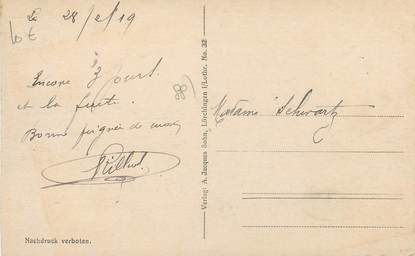 Le 28/2/19
Encore 3 jours
et la fuite.
Bonne poignée de main
Madame Schwartz
Verlag: A. Jacques Sohn, Lörchingen i/Lothr. No. 32
Nachdruck verboten.